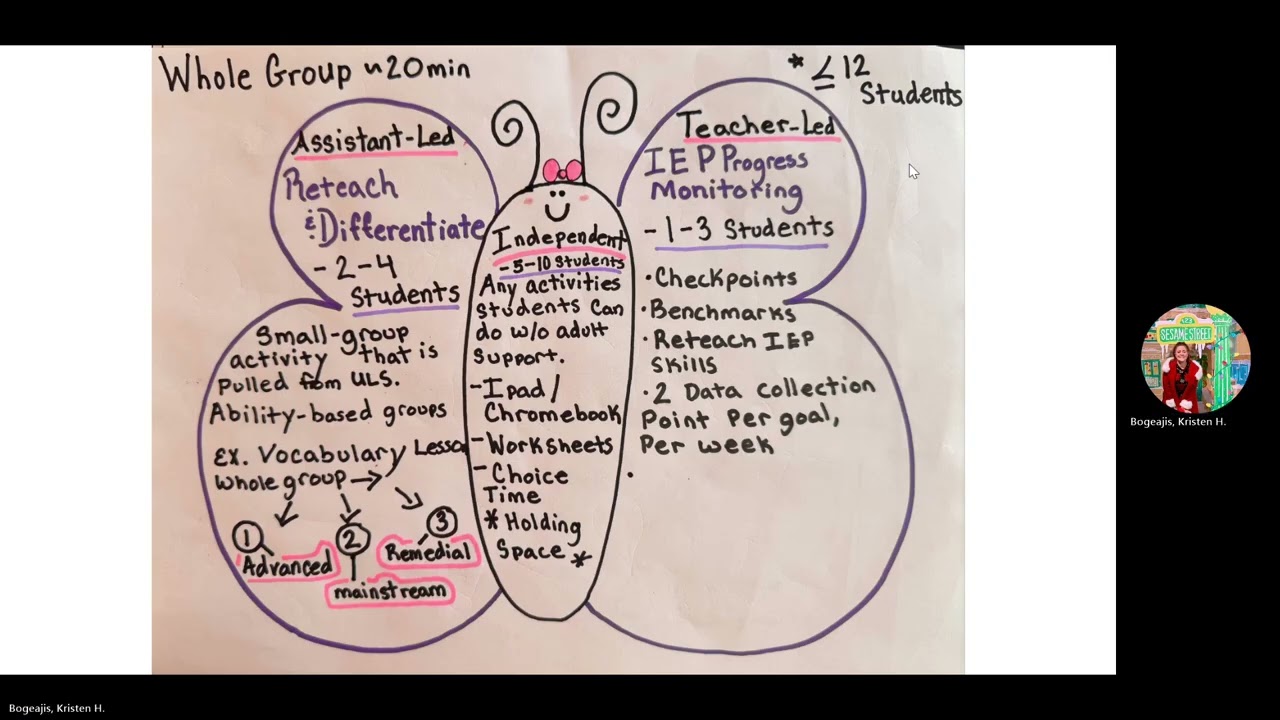 Whole Group ~20min
* ≤ 12
Students
Assistant-Led
Reteach
& Differentiate
- 2-4
Students
Small-group
activity that is
Pulled from ULS.
Ability-based groups
Ex. Vocabulary Lesson
whole group →
1 2 3
Advanced
mainstream
Remedial
Independent
-5-10 Students
Any activities
students can
do w/o adult
support.
- Ipad /
Chromebook
- Worksheets
- Choice
Time
* Holding
Space *
Teacher-Led
IEP Progress
Monitoring
- 1-3 Students
• Checkpoints
• Benchmarks
• Reteach IEP
Skills
• 2 Data collection
Point Per goal,
Per week
•
123
SESAME STREET
Bogeajis, Kristen H.
Bogeajis, Kristen H.